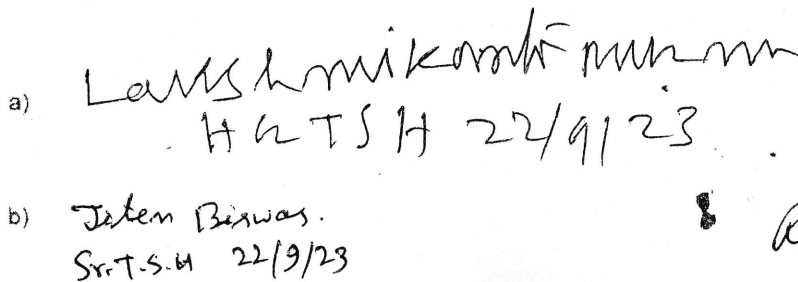 a) Lakshmikanta
HGTSH 22/9/23
b) Jiten Biswas.
Sr. T.S.H 22/9/23